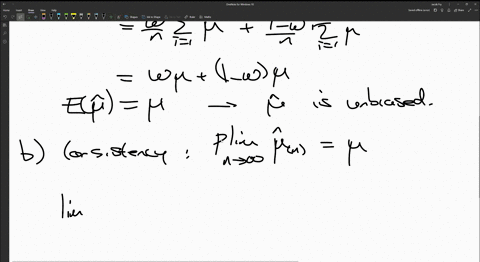 = ω/n Σ_{i=1} μ + (1-ω)/n Σ_{i=1} μ
= ωμ + (1-ω)μ
E(μ̂) = μ → μ̂ is unbiased.
b) Consistency : plim_{n→∞} μ̂_(n) = μ
lim